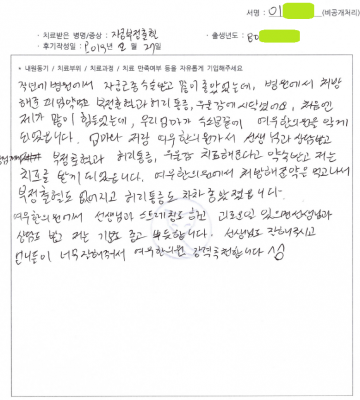 서명 : 이 (비공개처리)
· 치료받은 병명/증상 : 자궁부정출혈 · 출생년도 : 80
· 후기작성일 : 2014 2 21
* 내원동기 / 치료부위 / 치료과정 / 치료 만족여부 등을 자유롭게 기입해주세요
작년에 병원에서 자궁근종 수술받고 몸이 좋았었는데, 병원에서 처방
해준 피임약먹고 부정출혈과 허리통증, 우울감에 시달렸어요, 처음엔
제가 많이 힘들었는데, 우리엄마가 수소문끝에 여우한의원을 알게
되었습니다. 엄마랑 저랑 여우한의원가서 선생님과 상담받고
부정출혈과 허리통증, 우울감 치료해준다고 약속받고 저는
치료를 받게 되었습니다. 여우한의원에서 처방해준약을 먹고나서
부정출혈도 없어지고 허리통증도 차차 좋아졌습니다.
여우한의원에서 선생님이 스트레칭도 하고 괴로운일 있으면 선생님과
상담도 받고 저는 기분도 좋고 뿌듯합니다. 선생님도 잘해주시고
언니들이 너무 잘해주셔서 여우한의원 강력추천합니다